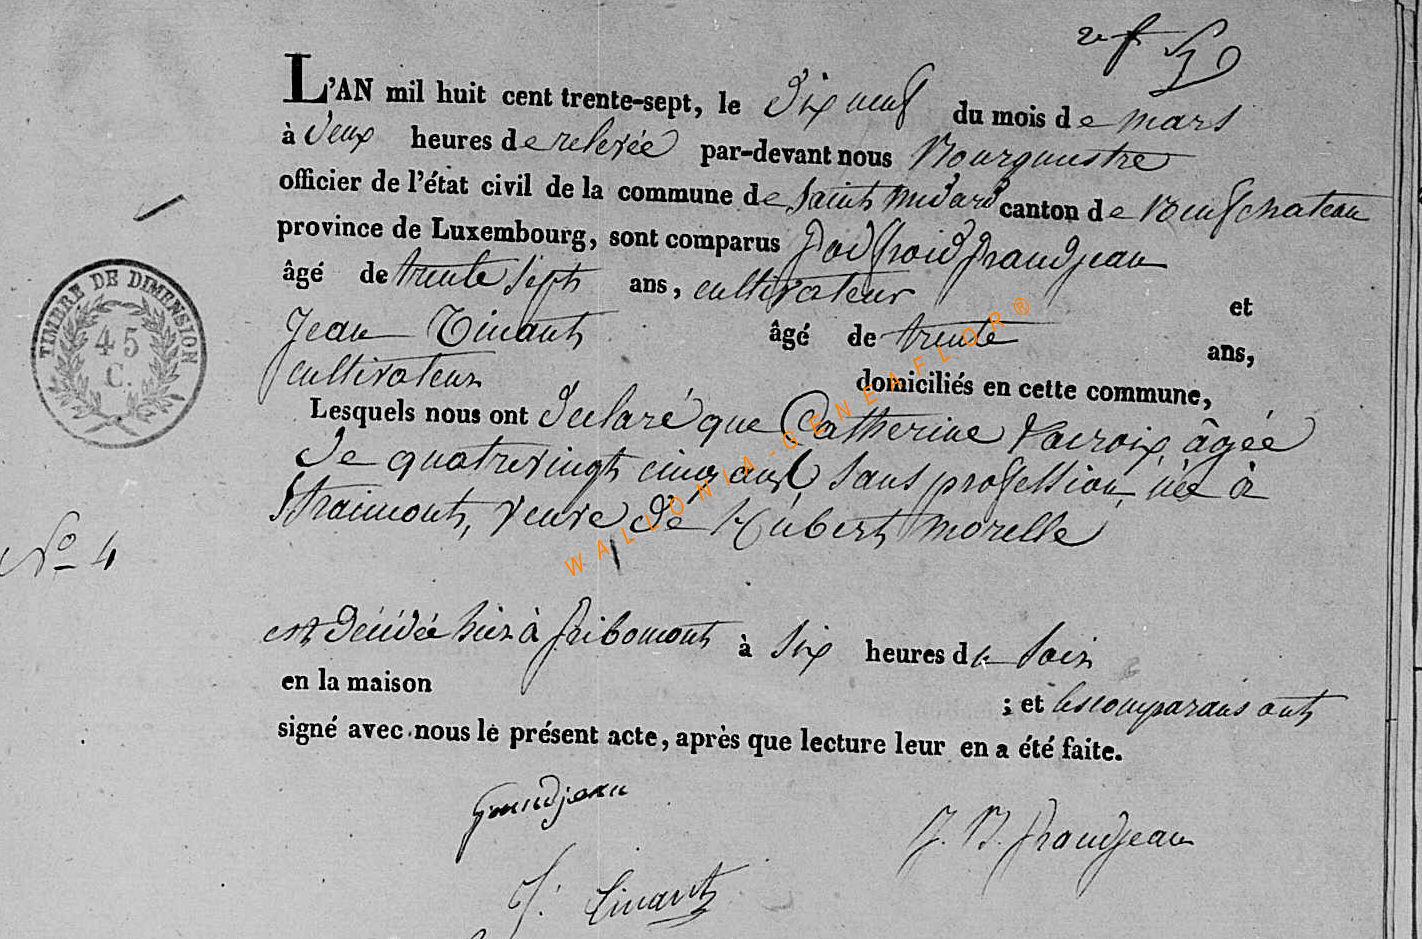 2 f
L'AN mil huit cent trente-sept, le Dix neuf du mois de mars
à Deux heures de relevée par-devant nous Bourgmestre
officier de l'état civil de la commune de Saint Medard canton de Neufchateau
province de Luxembourg, sont comparus Godfroid Grandjean
âgé de trente Sept ans, cultivateur et
Jean Tinant âgé de trente ans,
cultivateur domiciliés en cette commune,
Lesquels nous ont Declaré que Catherine Lacroix, âgée
De quatrevingt cinq ans, Sans profession, née à
Straimont, veuve de Hubert Morelle
est Décédée hier à Gribomont à Six heures du Soir
en la maison ; et les comparans ont
signé avec nous le présent acte, après que lecture leur en a été faite.
Grandjean
J. B. Grandjean
J. Tinant
No 4
TIMBRE DE DIMENSION
45
C.
WALLONIA-GENEAFLOR®